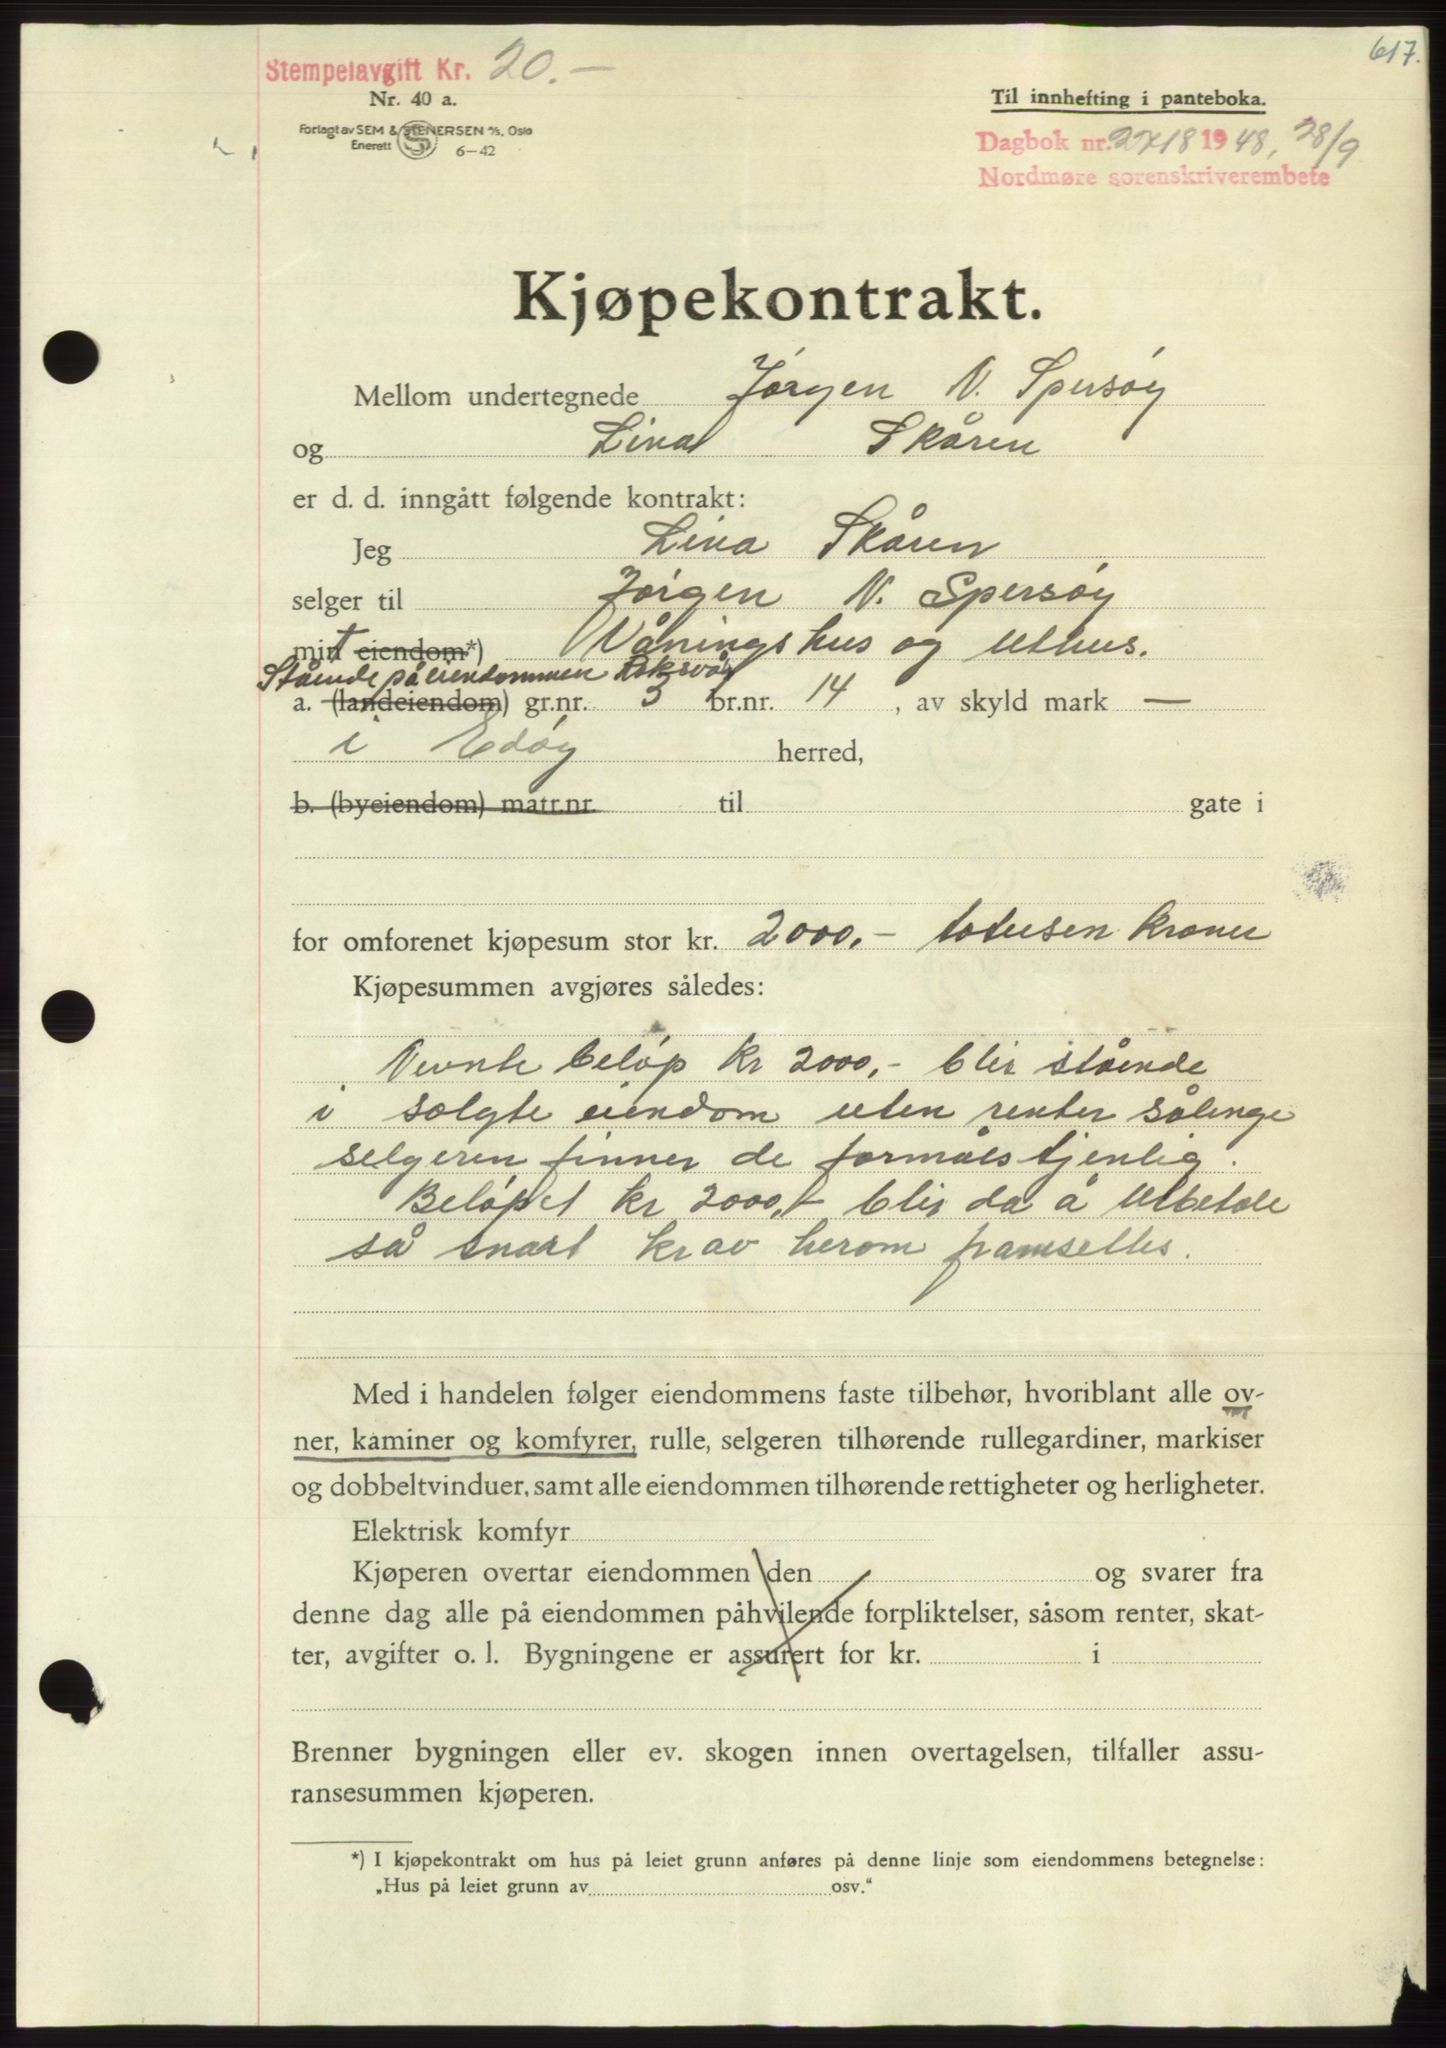 617.
Stempelavgift Kr. 20.—
Nr. 40 a.
Til innhefting i panteboka.
Forlagt av SEM & STENERSEN A/S, Oslo
Enerett 6–42
Dagbok nr. 2718 1948, 28/9
Nordmøre sorenskriverembete
Kjøpekontrakt.
Mellom undertegnede Jørgen N. Spersøy
og Lina Skåren
er d. d. inngått følgende kontrakt:
Jeg Lina Skåren
selger til Jørgen N. Spersøy
mitt eiendom*) Våningshus og uthus.
Stående på eiendommen Roksvåg
a. (landeiendom) gr.nr. 3 br.nr. 14, av skyld mark —
i Edøy herred,
b. (byeiendom) matr.nr. til gate i
for omforenet kjøpesum stor kr. 2000.– totusen kroner
Kjøpesummen avgjøres således:
Nevnte beløp kr 2000,- blir stående
i solgte eiendom uten renter sålenge
selgeren finner de formålstjenlig.
Beløpet kr 2000,- blir da å utbetale
så snart krav herom framsettes.
Med i handelen følger eiendommens faste tilbehør, hvoriblant alle ov-
ner, kaminer og komfyrer, rulle, selgeren tilhørende rullegardiner, markiser
og dobbeltvinduer, samt alle eiendommen tilhørende rettigheter og herligheter.
Elektrisk komfyr
Kjøperen overtar eiendommen den og svarer fra
denne dag alle på eiendommen påhvilende forpliktelser, såsom renter, skat-
ter, avgifter o. l. Bygningene er assurert for kr. i
Brenner bygningen eller ev. skogen innen overtagelsen, tilfaller assu-
ransesummen kjøperen.
*) I kjøpekontrakt om hus på leiet grunn anføres på denne linje som eiendommens betegnelse:
„Hus på leiet grunn av osv.“